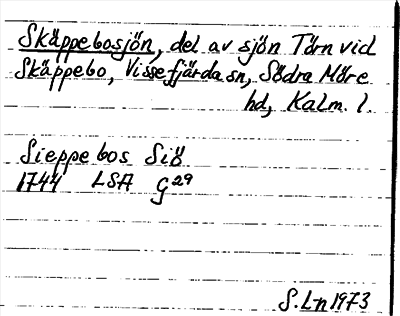 Skäppebosjön, del av sjön Törn vid
Skäppebo, Vissefjärda sn, Södra Möre
hd, Kalm. l.
Sieppebos Siö
1744 LSA G29
S. Ln 1973